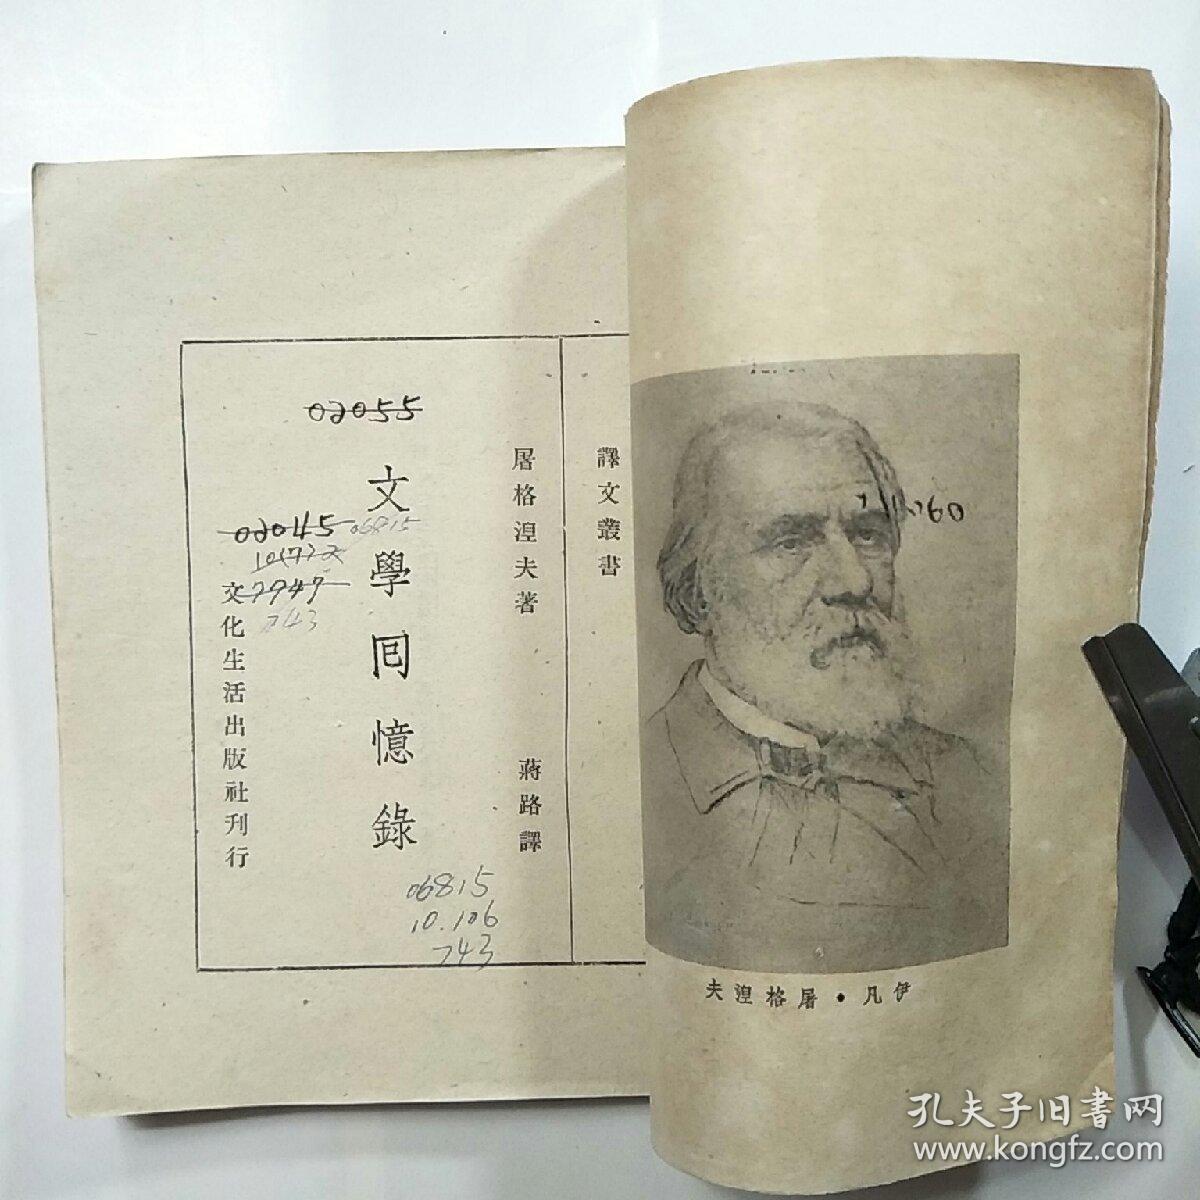 譯文叢書
屠格涅夫著
蔣路譯
02055
文學回憶錄
02045
06815
743
文化生活出版社刊行
06815
10.106
743
夫涅格屠・凡伊
孔夫子旧書网
www.kongfz.com